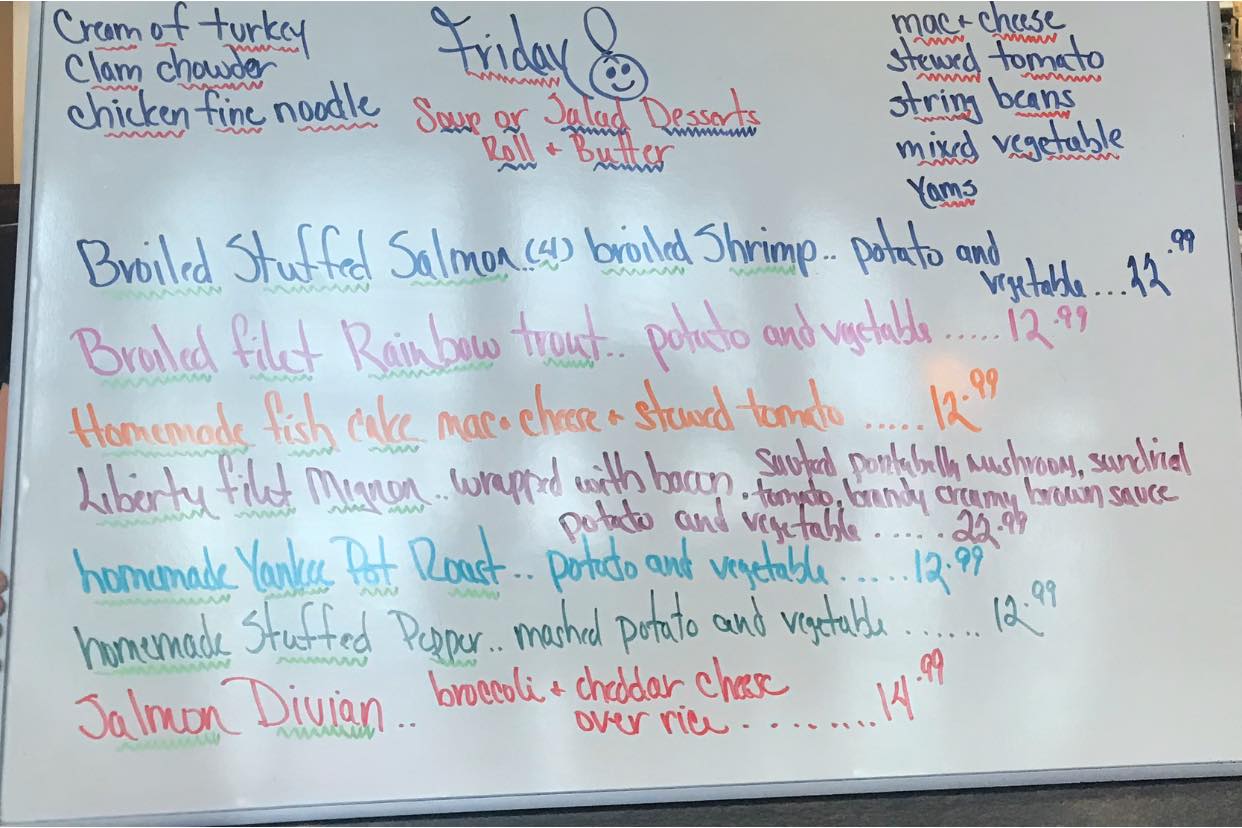 Cream of turkey
Clam chowder
chicken fine noodle
Friday
Soup or Salad Desserts
Roll + Butter
mac + cheese
stewed tomato
string beans
mixed vegetable
Yams
Broiled Stuffed Salmon..(4) broiled Shrimp.. potato and
vegetable ....22.99
Broiled filet Rainbow trout.. potato and vegetable .....12.99
Homemade fish cake mac + cheese + stewed tomato .....12.99
Liberty filet Mignon.. wrapped with bacon . Sauted portabella mushroom, sundried
tomato, brandy creamy brown sauce
potato and vegetable .....22.99
homemade Yankee Pot Roast.. potato and vegetable .....12.99
homemade Stuffed Pepper.. mashed potato and vegetable .......12.99
Salmon Divian.. broccoli + cheddar cheese
over rice .........14.99